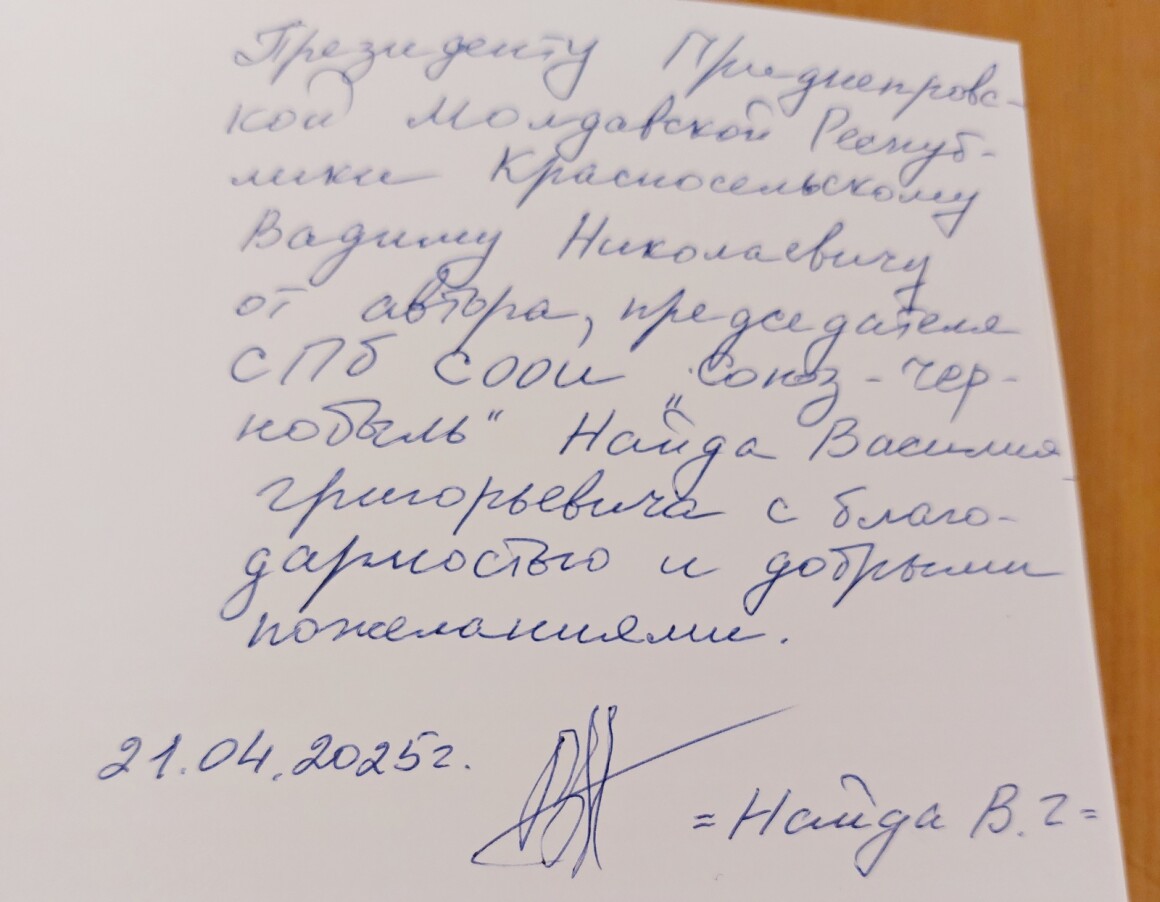 Президенту Приднепровс-
кой Молдавской Респуб-
лики Красносельскому
Вадиму Николаевичу
от автора, председателя
СПб СООИ „Союз-Чер-
нобыль" Найда Василия
Григорьевича с благо-
дарностью и добрыми
пожеланиями.
21.04.2025г.
= Найда В.Г =